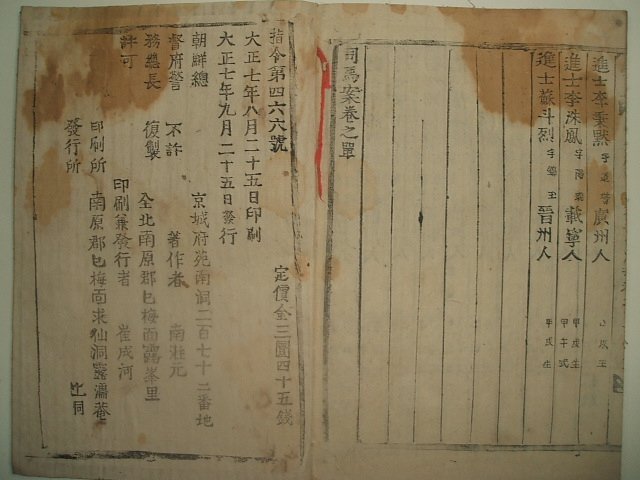 進士李 默 字 廣州人 戌生
進士李洙鳳 字 載寧人 甲戌生 甲午式
進士蘇斗烈 字 玉 晉州人 甲戌生
司馬案卷之單
指令第四六六號 定價金三圓四十五錢
大正七年八月二十五日印刷
大正七年九月二十五日發行
朝鮮總督府警務總長許可
不許複製
京城府苑南洞二百七十二番地
著作者 南 元
全北南原郡巳梅面露峯里
印刷兼發行者 崔成河
印刷所 南原郡巳梅面求仙洞露 菴
發行所 上同